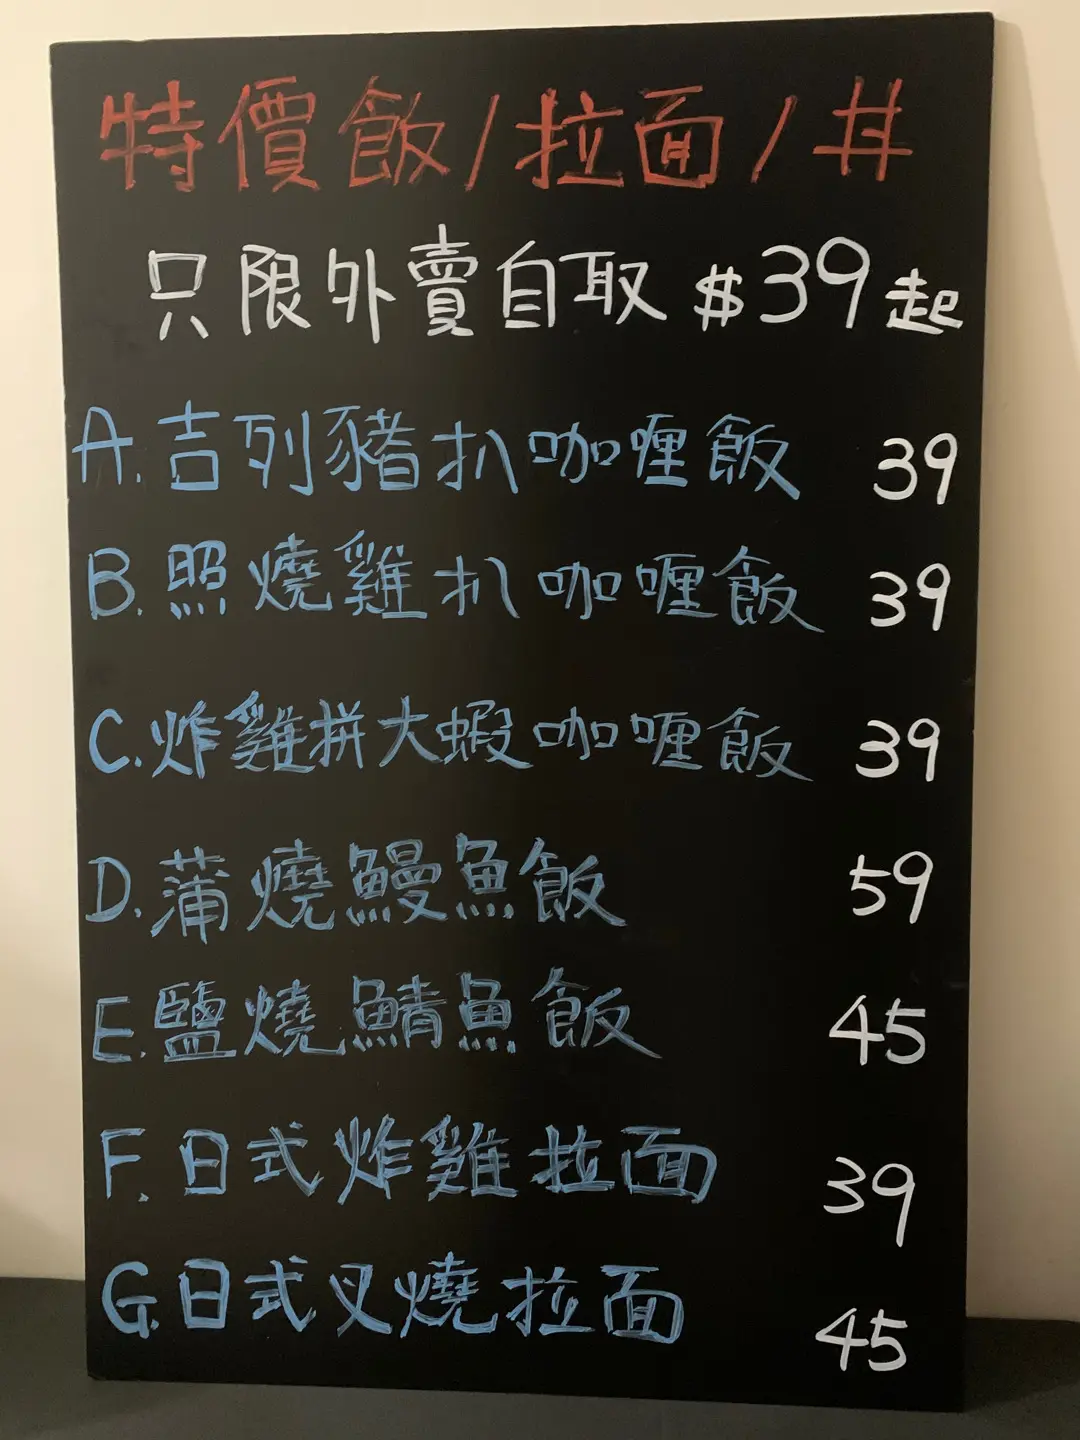 特價飯/拉面/丼
只限外賣自取 $39起
A.吉列豬扒咖喱飯 39
B.照燒雞扒咖喱飯 39
C.炸雞拼大蝦咖喱飯 39
D.蒲燒鰻魚飯 59
E.鹽燒鯖魚飯 45
F.日式炸雞拉面 39
G.日式叉燒拉面 45